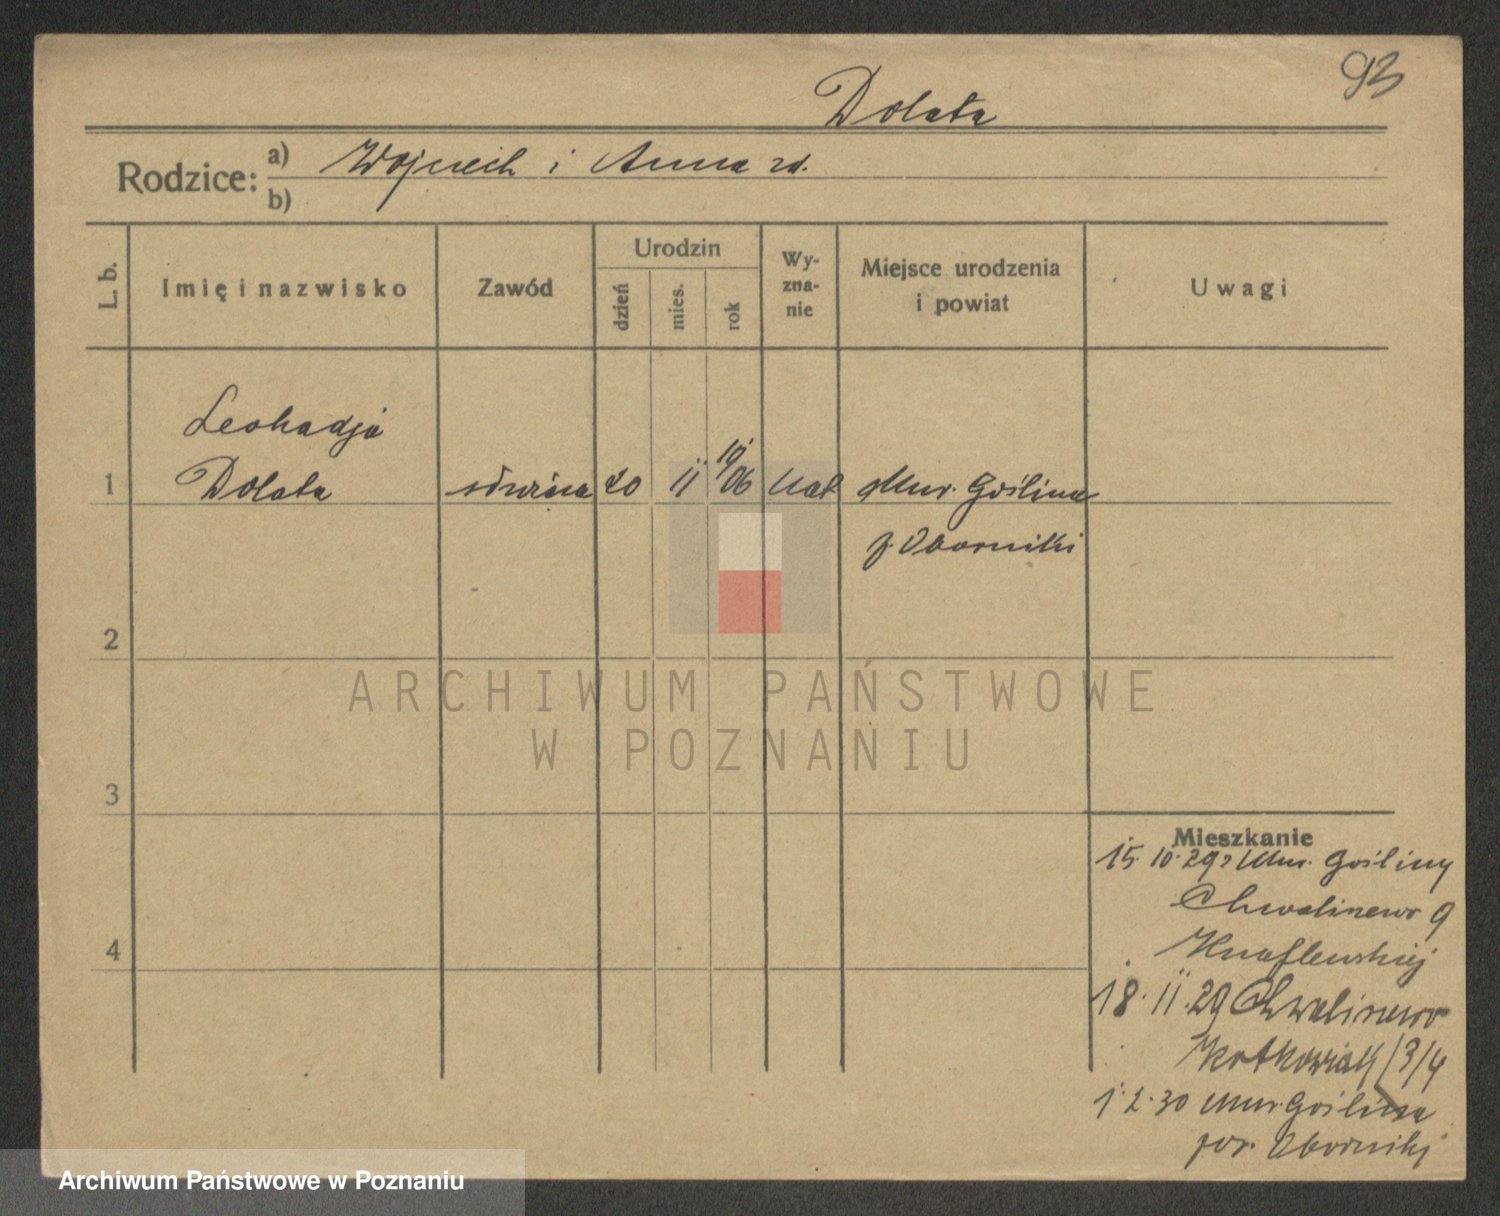 93
Dolata
Rodzice: a) Wojciech i Anna zd.
b)
L. b.
Imię i nazwisko
Zawód
Urodzin
dzień
mies.
rok
Wy-
zna-
nie
Miejsce urodzenia
i powiat
Uwagi
Leokadja
1 Dolata 20 11 19/06 kat Mur. Goślina
p. Oborniki
2
3
4
ARCHIWUM PAŃSTWOWE
W POZNANIU
Mieszkanie
15.10.29 z Mur. Gośliny
Chwaliszewo 9
Knaflewskiej
18.11.29 Chwaliszewo
Kotkowiak
1.2.30 Mur. Goślina
pow. Oborniki
Archiwum Państwowe w Poznaniu